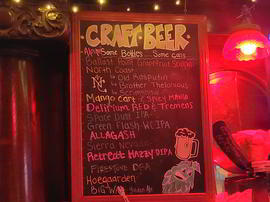 CRAFT BEER
Also Some Bottles... Some cans...
Ballast Point Grapefruit Sculpin
North Coast
NC
Old Rasputin
Brother Thelonious
Scrimshaw
Mango Cart & Spicy Mango
Delirium RED & Tremens
Space Dust IPA
Green Flash WC IPA
ALLAGASH
Sierra Neva
Retreat HAZZY DIPA
Firestone DBA
Hoegaarden
BIG WAVE Golden Ale